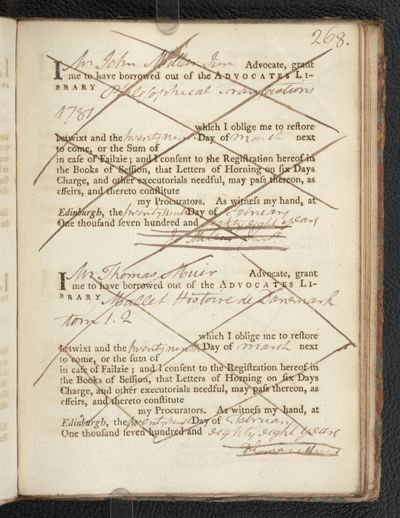 268.
I Mr John Millar Junr Advocate, grant
me to have borrowed out of the ADVOCATES LI-
BRARY Philosophical Transactions
1781
which I oblige me to restore
betwixt and the twenty ninth Day of March next
to come, or the Sum of
in case of Failzie; and I consent to the Registration hereof in
the Books of Session, that Letters of Horning on six Days
Charge, and other executorials needful, may pass thereon, as
effeirs, and thereto constitute
my Procurators. As witness my hand, at
Edinburgh, the twenty ninth Day of February
One thousand seven hundred and eighty eight years
I Mr Thomas Muir Advocate, grant
me to have borrowed out of the ADVOCATES LI-
BRARY Mallet Histoire de Danemark
tom 1. 2
which I oblige me to restore
betwixt and the twenty ninth Day of March next
to come, or the sum of
in case of Failzie; and I consent to the Registration hereof in
the Books of Session, that Letters of Horning on six Days
Charge, and other executorials needful, may pass thereon, as
effeirs, and thereto constitute
my Procurators. As witness my hand, at
Edinburgh, the twenty ninth Day of February
One thousand seven hundred and eighty eight years
Thomas Muir